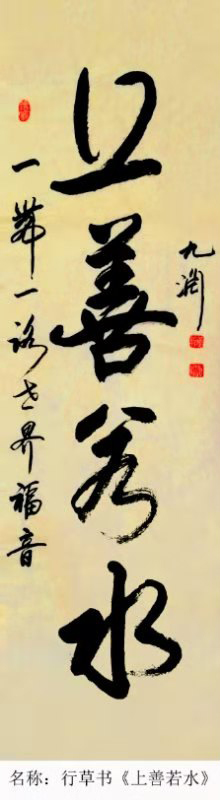 上善若水
一带一路世界福音
九渊
名称：行草书《上善若水》